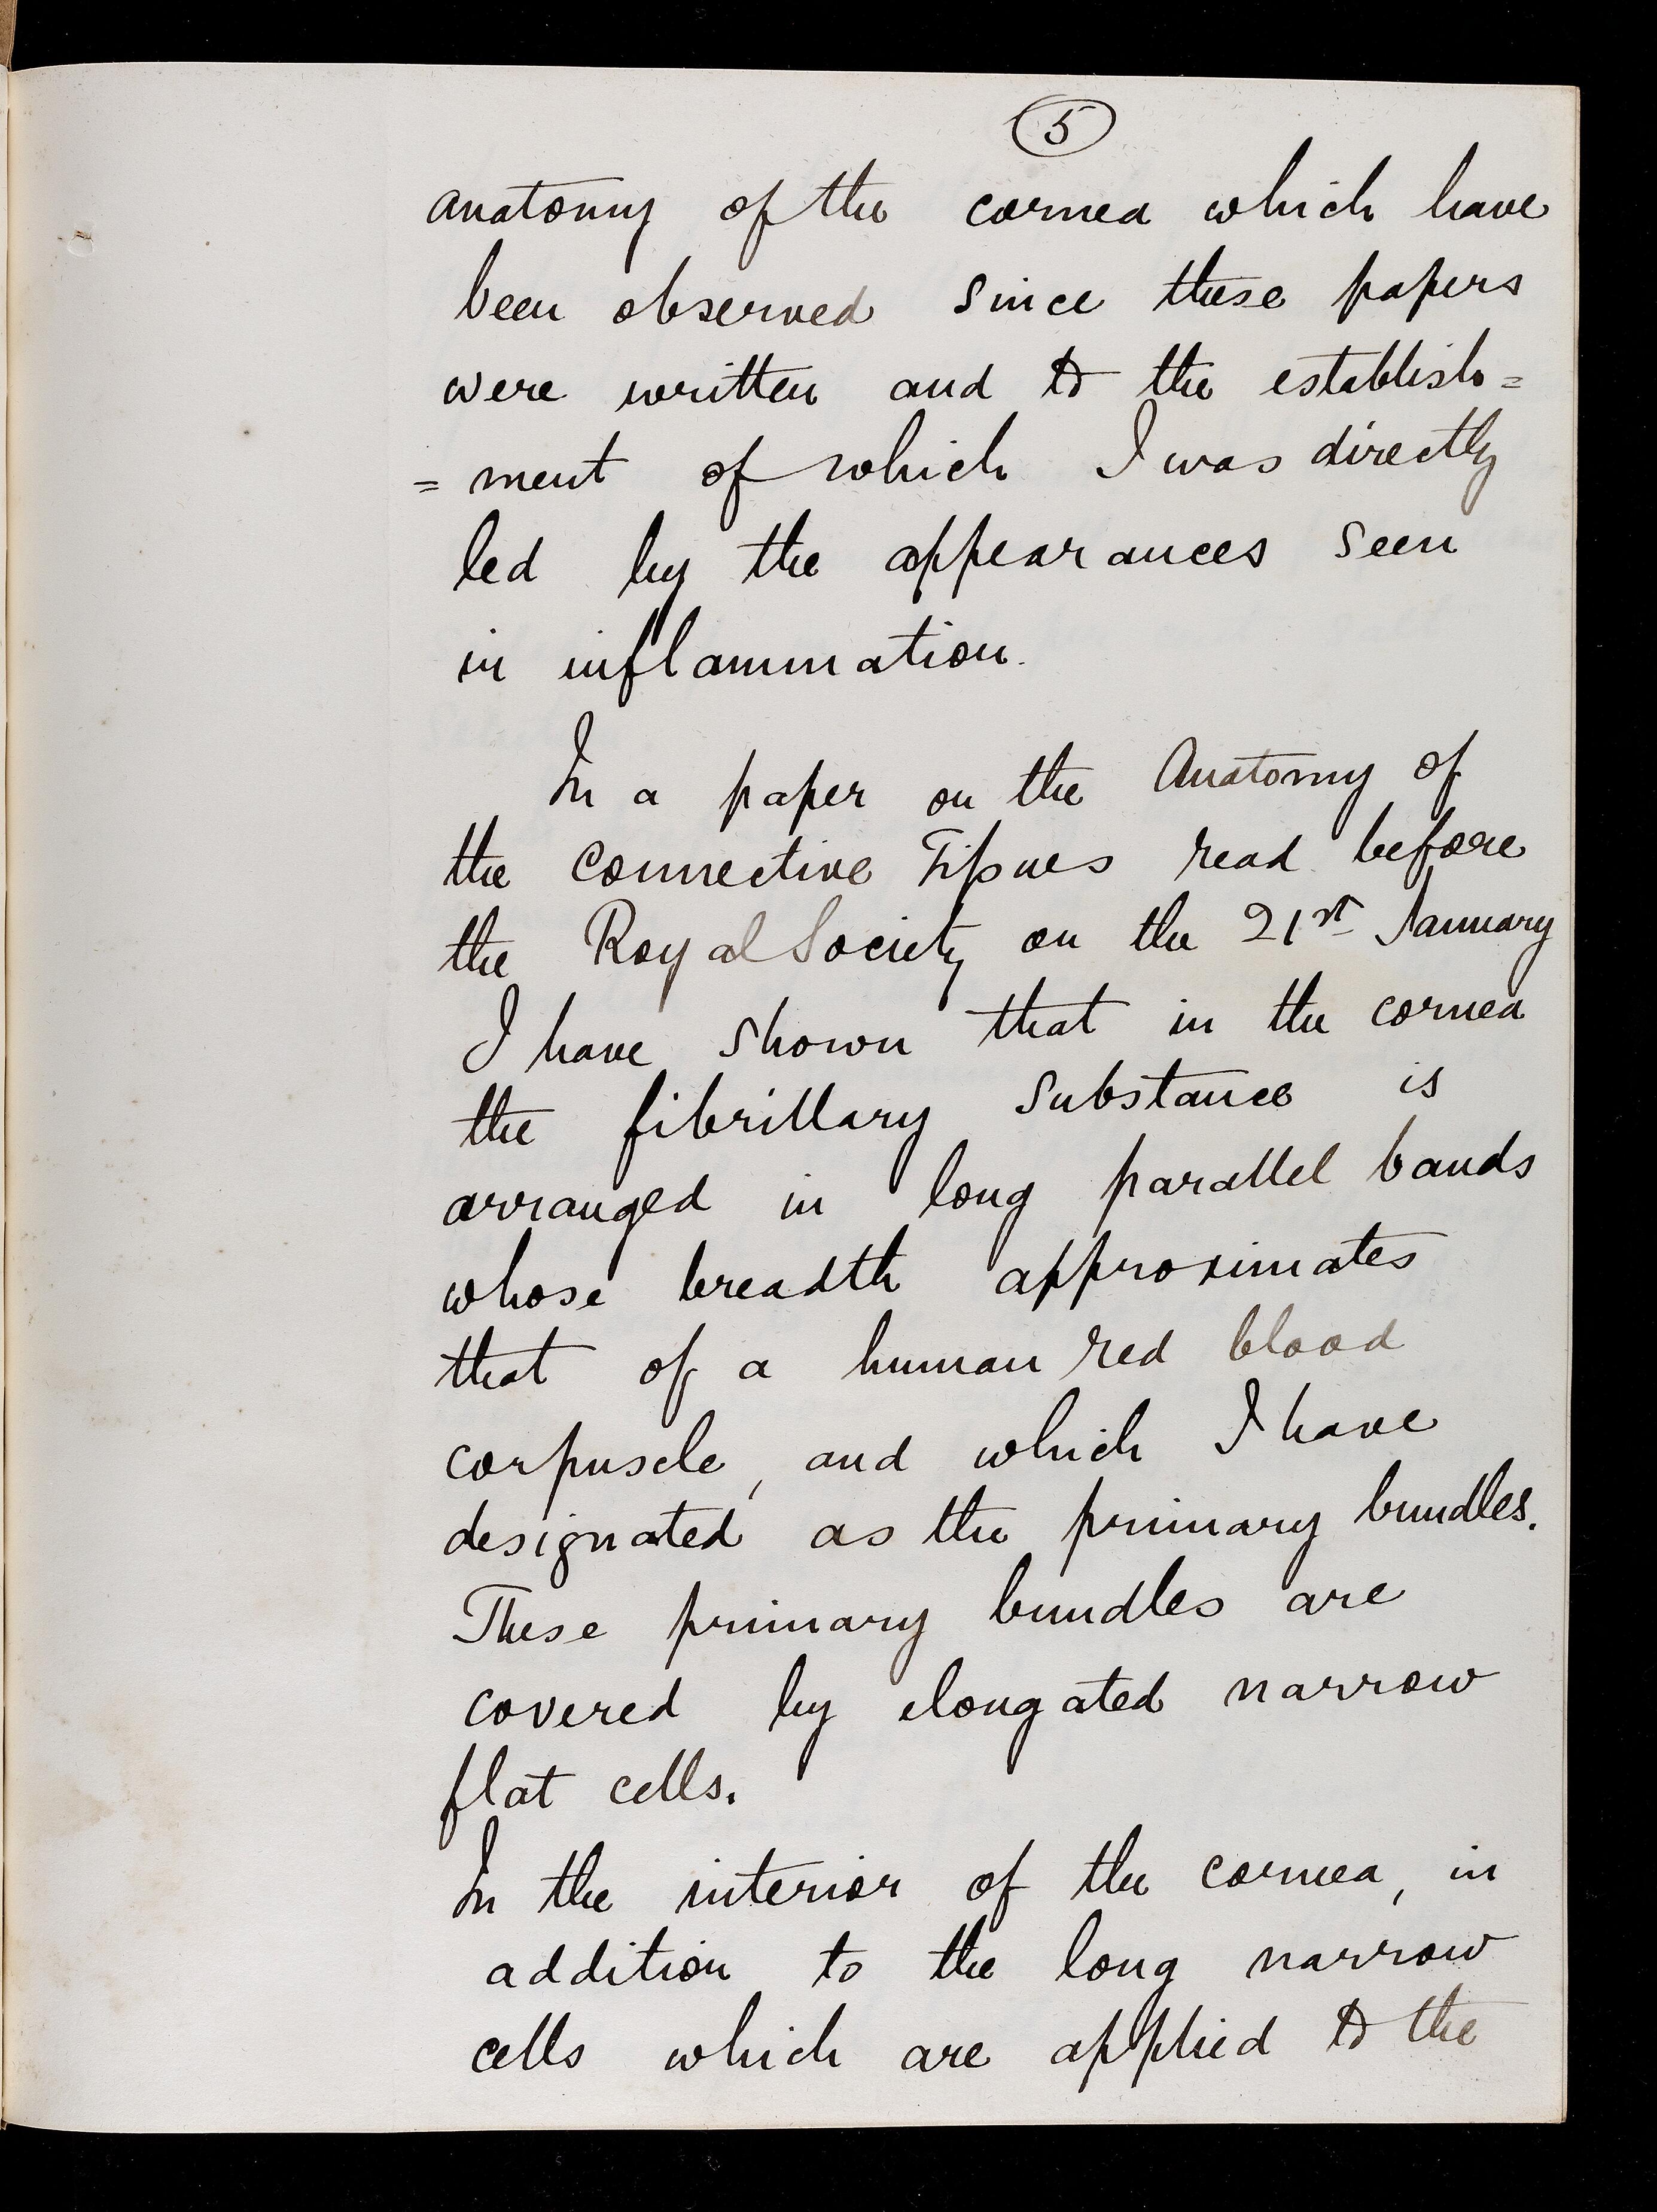 5
anatomy of the cornea which have
been observed since these papers
were written and to the establish=
=ment of which I was directly
led by the appearances seen
in inflammation.
In a paper on the Anatomy of
the Connective Tissues read before
the Royal Society on the 21st January
I have shown that in the cornea
the fibrillary substance is
arranged in long parallel bands
whose breadth approximates
that of a human red blood
corpuscle, and which I have
designated as the primary bundles.
These primary bundles are
covered by elongated narrow
flat cells.
In the interior of the cornea, in
addition to the long narrow
cells which are applied to the